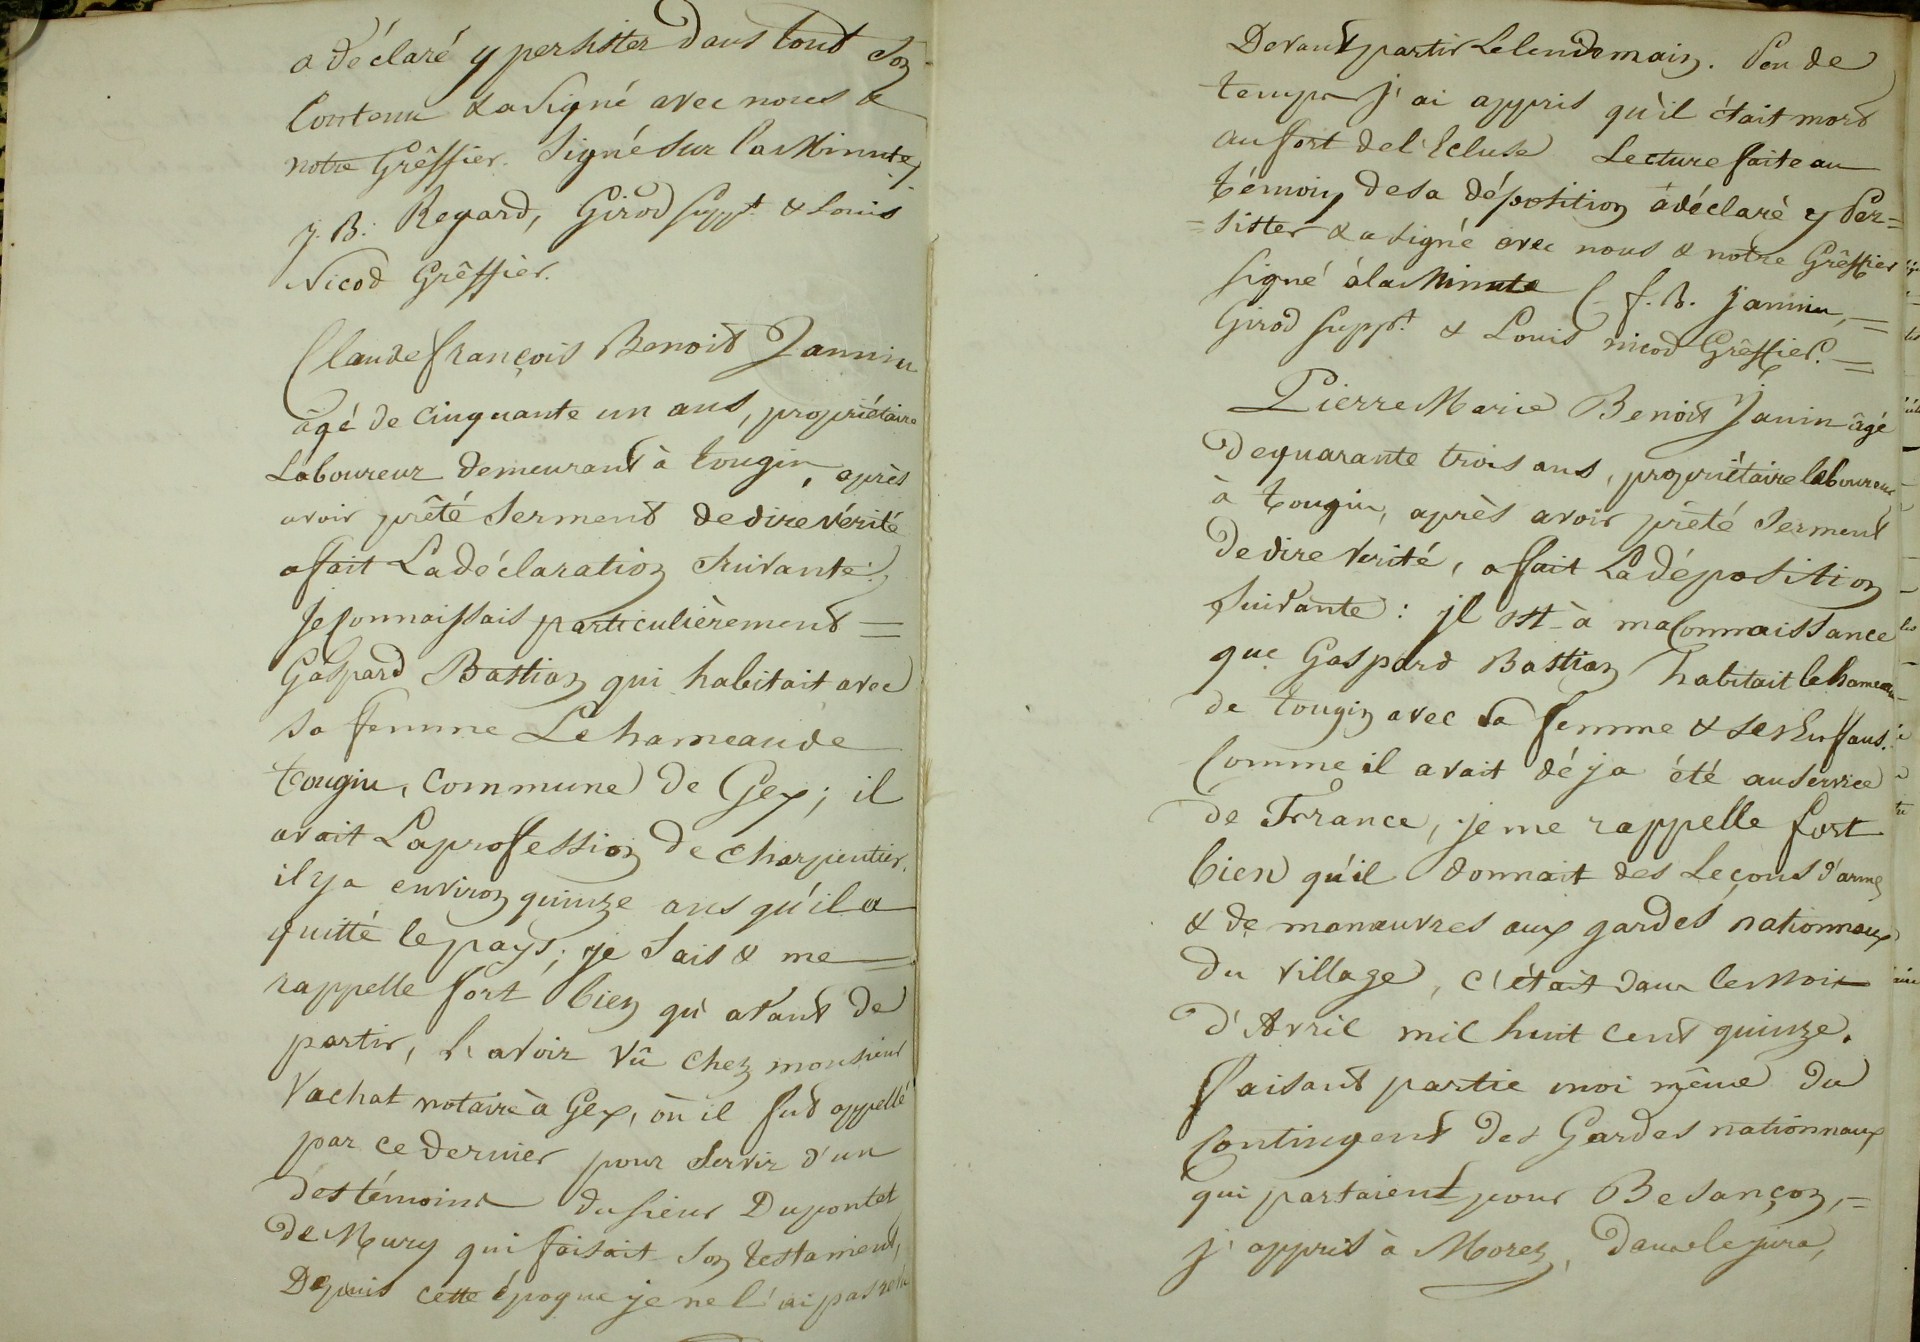 a déclaré y persister dans tout son
Contenu & a signé avec nous &
notre Grêffier. Signé sur la Minute,
J. B. Regard, Girod suppt. & Louis
Nicod Grêffier.
Claude françois Benoit Jannin
âgé de cinquante un ans, propriétaire
Laboureur demeurant à tougin, après
avoir prêté serment de dire vérité
a fait La déclaration suivante:
je Connaissais particulièrement =
Gaspard Bastian qui habitait avec
sa femme Le hameau de
tougin, commune de Gex; il
avait La profession de charpentier.
il y a environ quinze ans qu'il a
quitté le pays; je sais & me
rappelle fort bien qu'avant de
partir, l'avoir vû chez monsieur
Vachat notaire à Gex, où il fut appellé
par ce dernier pour servir d'un
des témoins du sieur Dupontet
de Mury qui faisait son testament,
Depuis cette époque je ne l'ai pas revu
Devant partir Le lendemain. Peu de
temps j'ai appris qu'il était mort
au fort de l'Ecluse Lecture faite au
témoin de sa déposition a déclaré y Per=
=sister & a signé avec nous & notre Grêffier
signé à la Minute C. f. B. Jannin, =
Girod suppt. & Louis nicod Grêffier. =
Pierre Marie Benoit Janin âgé
De quarante trois ans, propriétaire laboureur
à tougin, après avoir prêté serment
De dire Verité, a fait La déposition
suivante: jl est à ma Connaissance
que Gaspard Bastian habitait le hameau
de tougin avec sa femme & ses Enffans.
Comme il avait déja été au service
de France, je me rappelle fort
bien qu'il donnait des Leçons d'armes
& de manœuvres aux gardes nationnaux
du village, c'était dans le Mois
d'Avril mil huit cent quinze.
faisant partie moi même du
Contingent des Gardes nationnaux
qui partaient pour Besançon, =
j'appris à Morez, dans le jura,